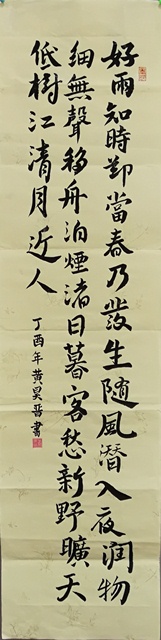 好雨知時節當春乃發生随風潛入夜润物
細無聲移舟泊煙渚日暮客愁新野曠天
低樹江清月近人
丁酉年黄昊晋書